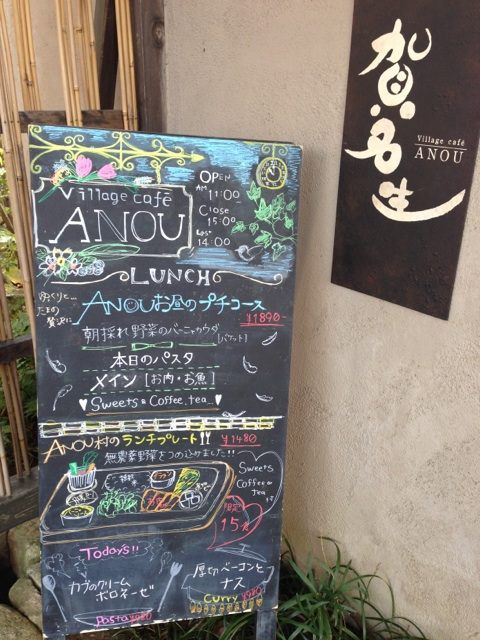 賀名生
Village café
ANOU
Village café
ANOU
OPEN
AM 11:00
Close
15:00
Last
14:00
LUNCH
ゆっくりと…
たまの
贅沢に
ANOUお昼のプチコース
¥1890-
朝採れ野菜のバーニャカウダ
[バケット]
本日のパスタ
メイン [お肉・お魚]
♥ Sweets & Coffee, tea… ♥
ANOU村のランチプレート ¥1480
無農薬野菜をつめ込めました!!
Sweets
Coffee or
Tea
限定
15食
Today's!!
カヴのクリーム
ボロネーゼ
Pasta ¥980
厚切ベーコンと
ナス
Curry ¥980